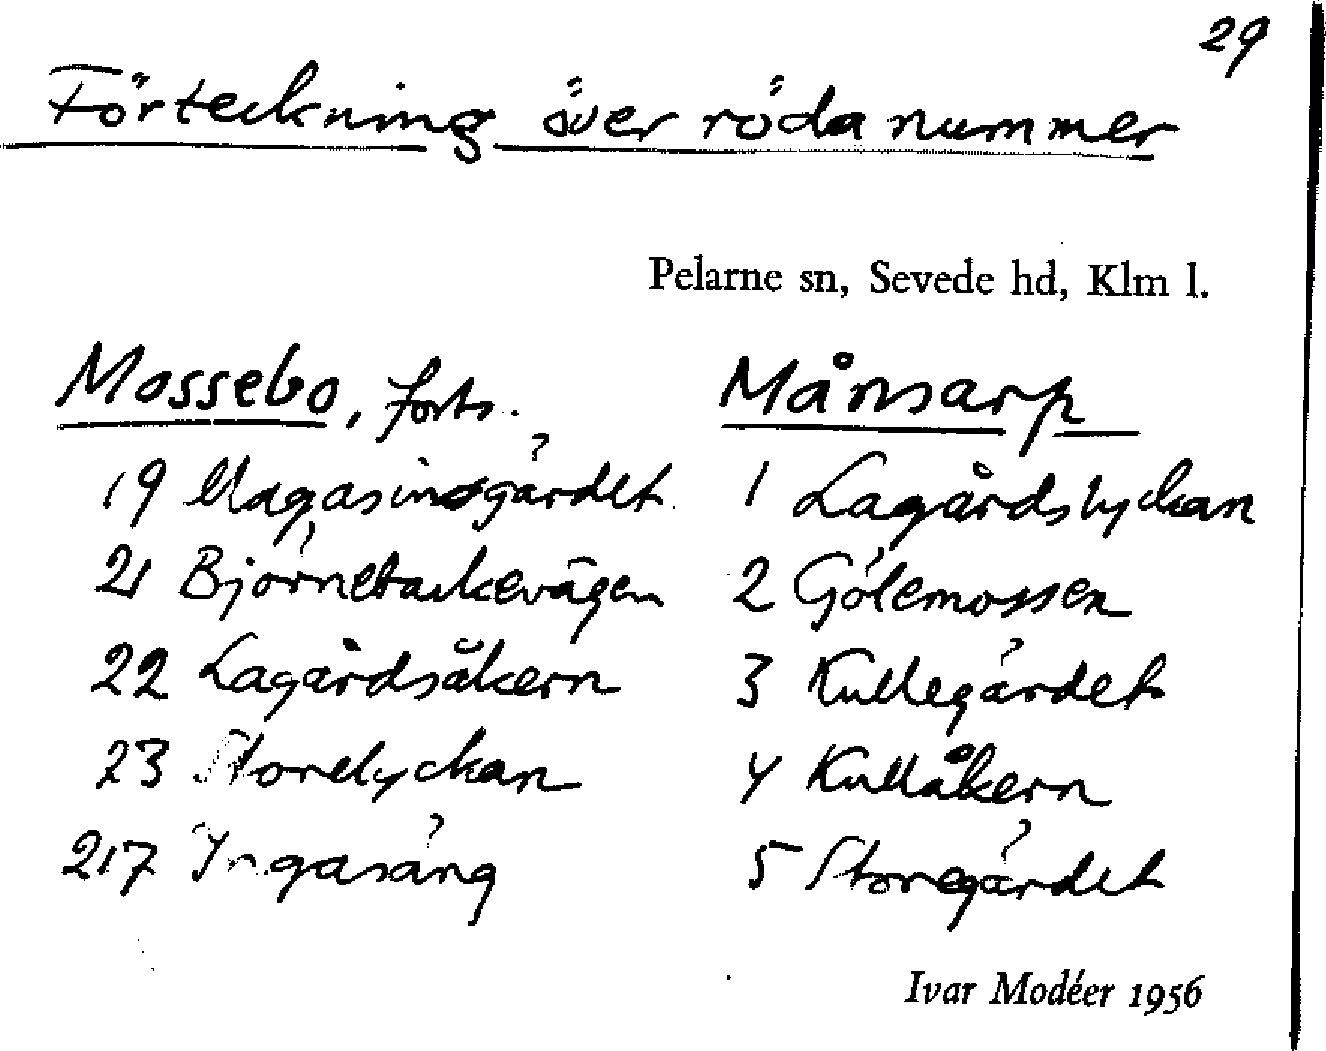 29
Förteckning över röda nummer
Pelarne sn, Sevede hd, Klm l.
Mossebo, forts.
19 Magasinsgärdet
21 Björnebackevägen
22 Lagårdsåkern
23 Storelyckan
217 Ingasäng
Månsarp
1 Lagårdslyckan
2 Gölemossen
3 Kullegärdet
4 Kullåkern
5 Storegärdet
Ivar Modéer 1956